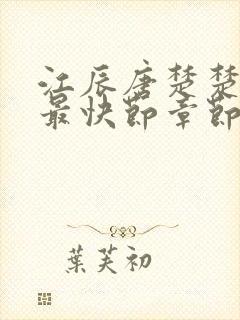 江辰唐楚楚
最快节章节
葉芙初